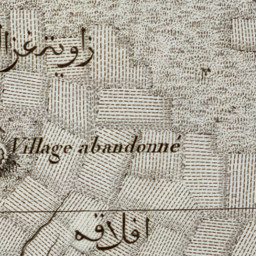 زاوية غزا
Village abandonné
افلاقه